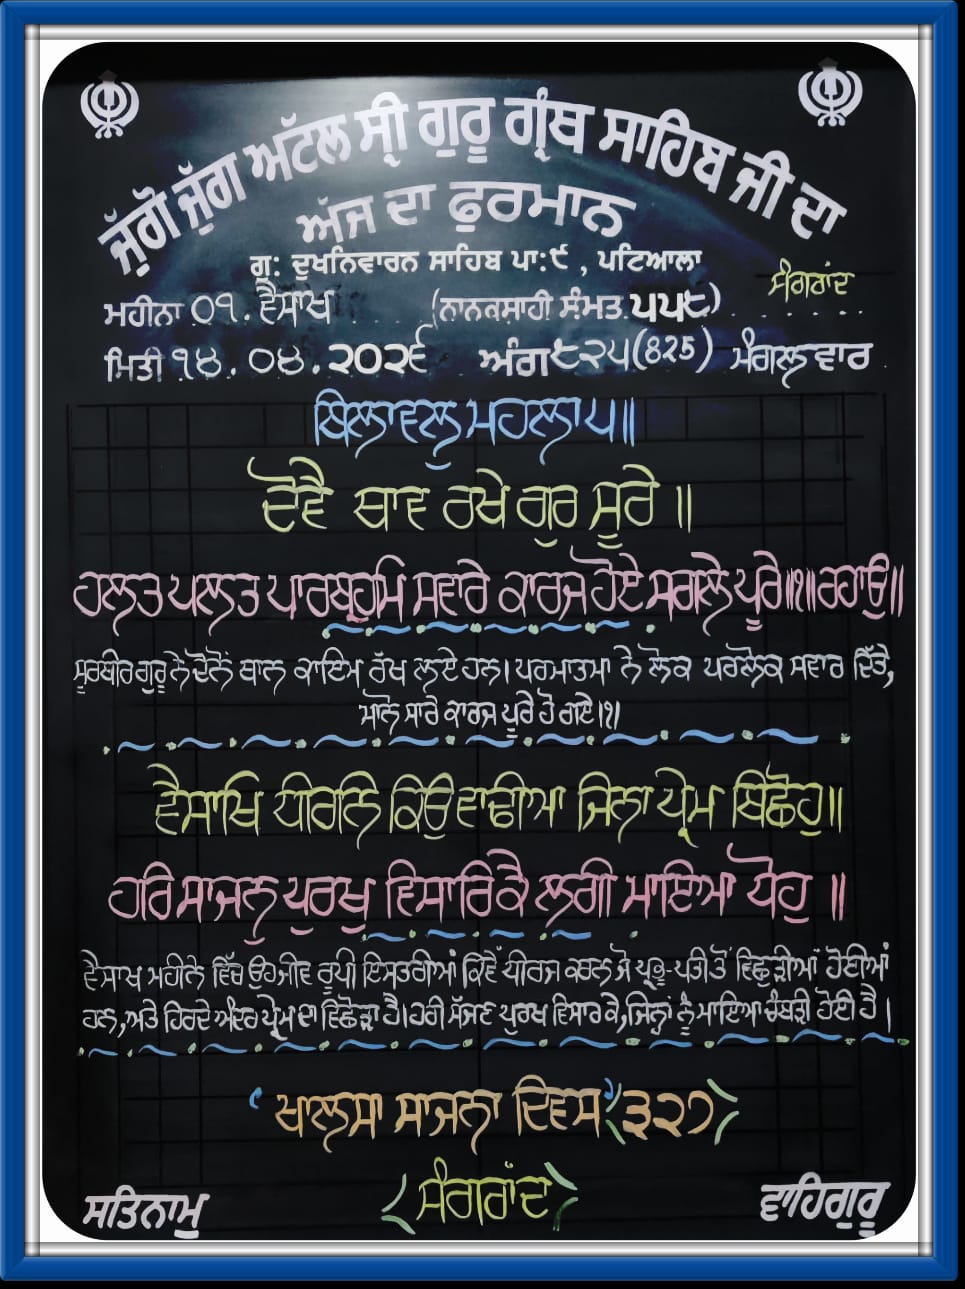 ਜੁੱਗੋ ਜੁੱਗ ਅਟੱਲ ਸ੍ਰੀ ਗੁਰੂ ਗ੍ਰੰਥ ਸਾਹਿਬ ਜੀ ਦਾ
ਅੱਜ ਦਾ ਫੁਰਮਾਨ
ਗੁ: ਦੁਖਨਿਵਾਰਨ ਸਾਹਿਬ ਪਾ:੯ , ਪਟਿਆਲਾ
ਸੰਗਰਾਂਦ
ਮਹੀਨਾ ੦੧. ਵੈਸਾਖ (ਨਾਨਕਸ਼ਾਹੀ ਸੰਮਤ ੫੫੮)
ਮਿਤੀ ੧੪. ੦੪. ੨੦੨੬ ਅੰਗ ੮੨੫(825) ਮੰਗਲਵਾਰ
ਬਿਲਾਵਲੁ ਮਹਲਾ ੫॥
ਦੋਵੈ ਥਾਵ ਰਖੇ ਗੁਰ ਸੂਰੇ ॥
ਹਲਤ ਪਲਤ ਪਾਰਬ੍ਰਹਮਿ ਸਵਾਰੇ ਕਾਰਜ ਹੋਏ ਸਗਲੇ ਪੂਰੇ॥੧॥ਰਹਾਉ॥
ਸੂਰਬੀਰ ਗੁਰੂ ਨੇ ਦੋਨੋਂ ਥਾਨ ਕਾਇਮ ਰੱਖ ਲਏ ਹਨ। ਪਰਮਾਤਮਾ ਨੇ ਲੋਕ ਪਰਲੋਕ ਸਵਾਰ ਦਿੱਤੇ,
ਮਾਨੋ ਸਾਰੇ ਕਾਰਜ ਪੂਰੇ ਹੋ ਗਏ।੧।
ਵੈਸਾਖਿ ਧੀਰਨਿ ਕਿਉ ਵਾਢੀਆ ਜਿਨਾ ਪ੍ਰੇਮ ਬਿਛੋਹੁ॥
ਹਰਿ ਸਾਜਨੁ ਪੁਰਖੁ ਵਿਸਾਰਿ ਕੈ ਲਗੀ ਮਾਇਆ ਧੋਹੁ ॥
ਵੈਸਾਖ ਮਹੀਨੇ ਵਿੱਚ ਉਹ ਜੀਵ ਰੂਪੀ ਇਸਤਰੀਆਂ ਕਿਵੇਂ ਧੀਰਜ ਕਰਨ ਜੋ ਪ੍ਰਭੂ-ਪਤੀ ਤੋਂ ਵਿਛੁੜੀਆਂ ਹੋਈਆਂ
ਹਨ, ਅਤੇ ਹਿਰਦੇ ਅੰਦਰ ਪ੍ਰੇਮ ਦਾ ਵਿਛੋੜਾ ਹੈ। ਹਰੀ ਸੱਜਣ ਪੁਰਖ ਵਿਸਾਰ ਕੇ, ਜਿਨ੍ਹਾਂ ਨੂੰ ਮਾਇਆ ਚੰਬੜੀ ਹੋਈ ਹੈ ।
'ਖਾਲਸਾ ਸਾਜਨਾ ਦਿਵਸ'(੩੨੭)
(ਸੰਗਰਾਂਦ)
ਸਤਿਨਾਮੁ ਵਾਹਿਗੁਰੂ